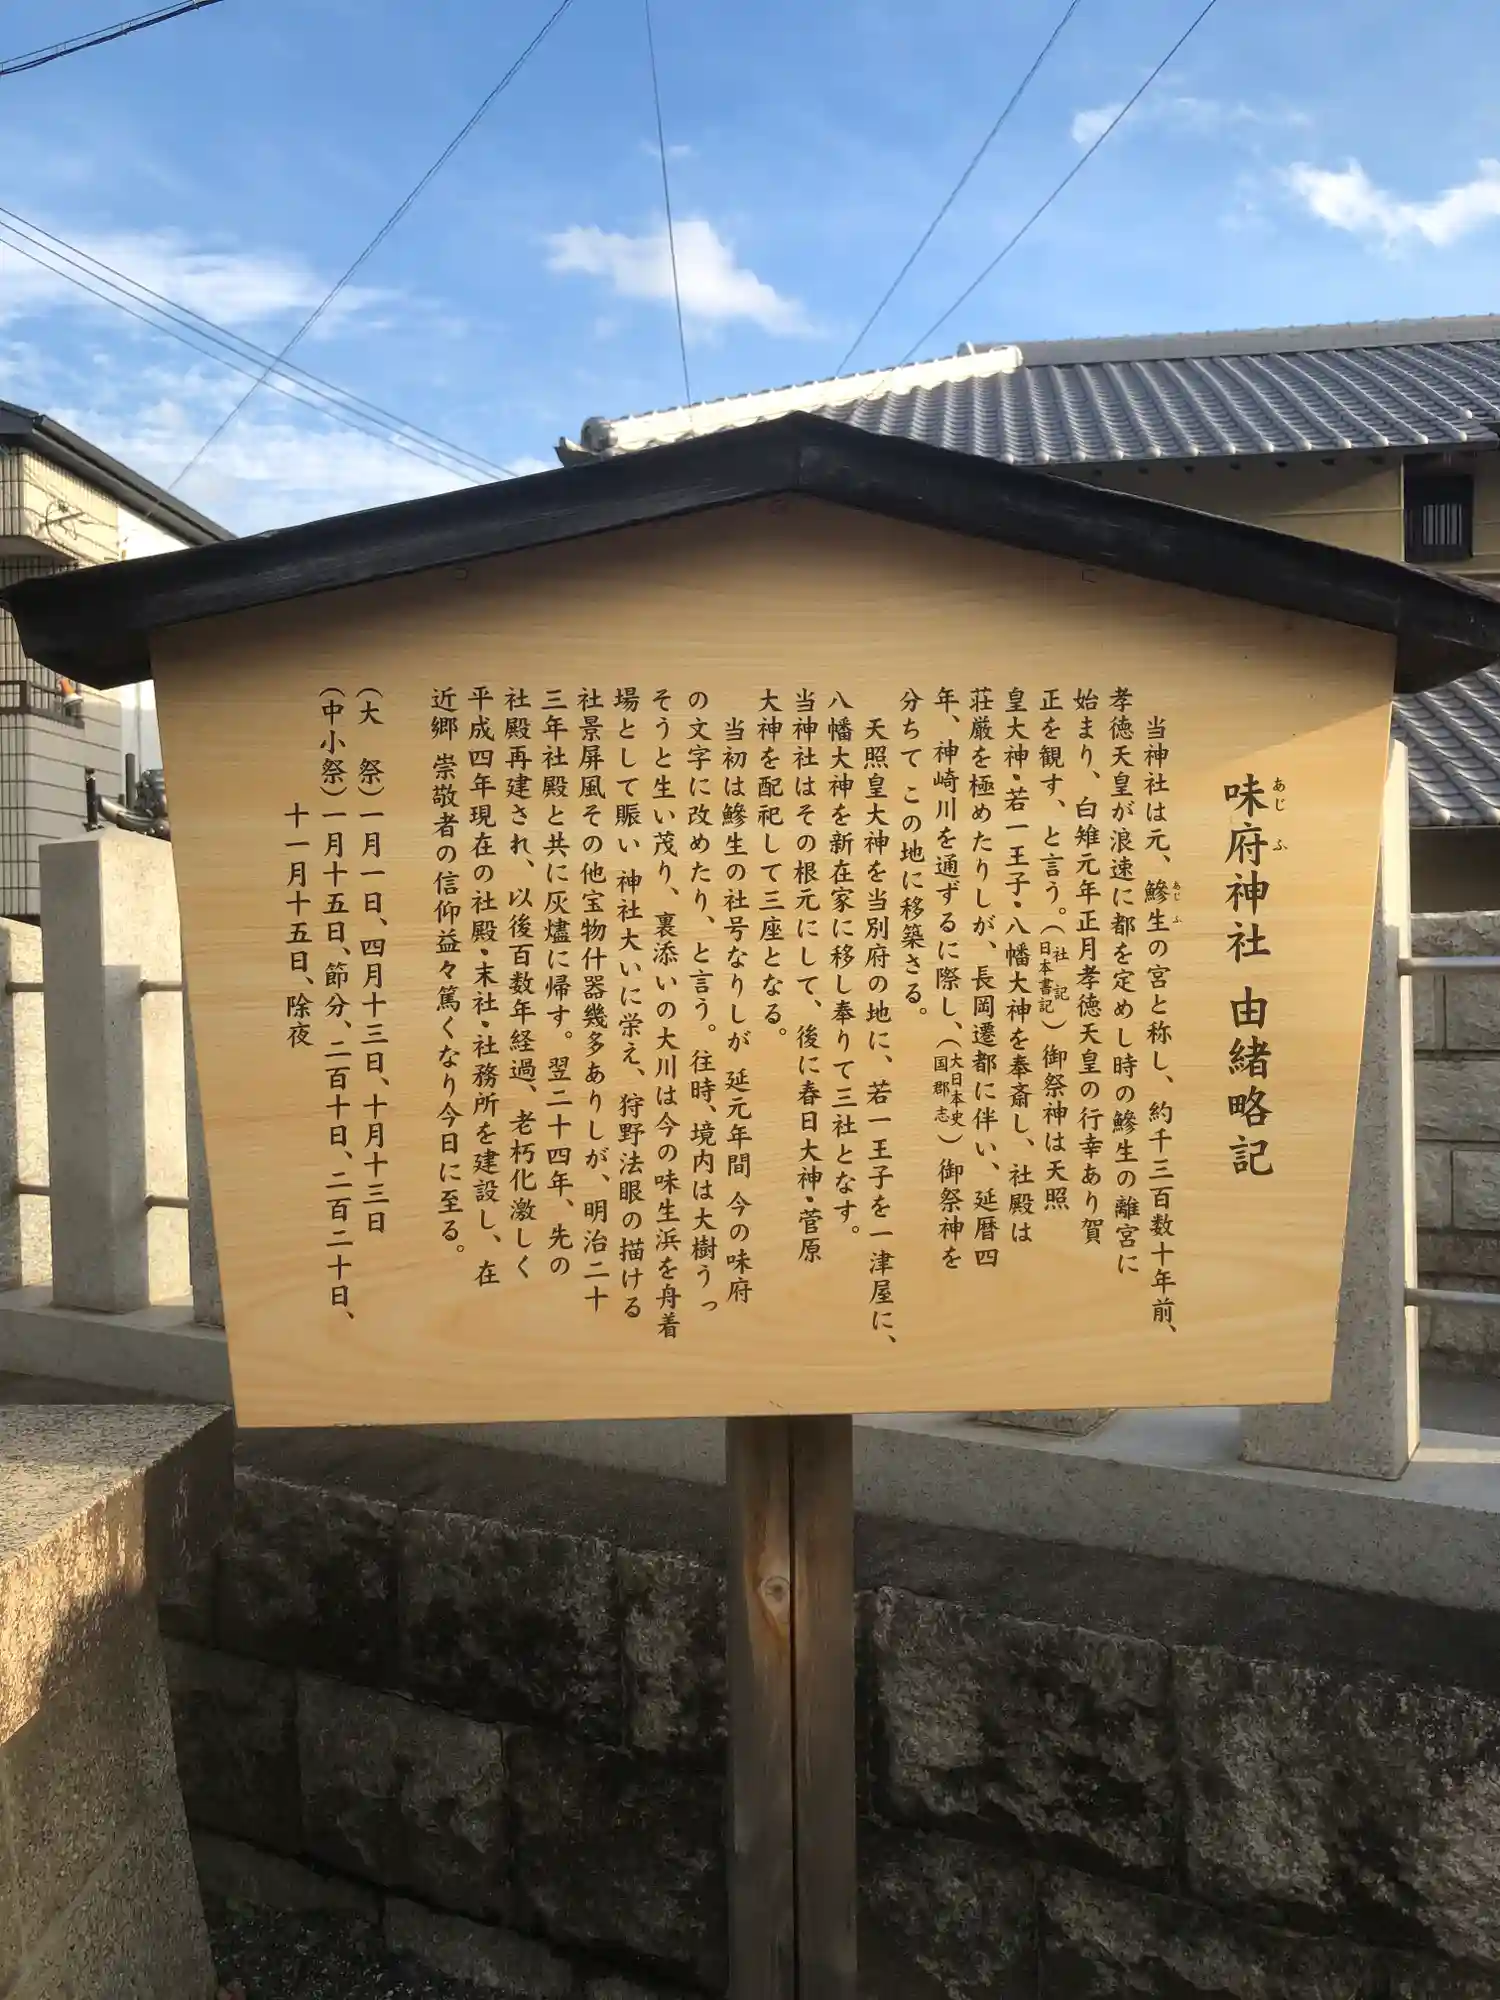 味府神社 由緒略記
あじ ふ
当神社は元、鰺生の宮と称し、約千三百数十年前、
あじ ふ
孝徳天皇が浪速に都を定めし時の鰺生の離宮に
始まり、白雉元年正月孝徳天皇の行幸あり賀
正を観す、と言う。(社記 日本書記)御祭神は天照
皇大神・若一王子・八幡大神を奉斎し、社殿は
荘厳を極めたりしが、長岡遷都に伴い、延暦四
年、神崎川を通ずるに際し、(大日本史 国郡志)御祭神を
分ちて この地に移築さる。
天照皇大神を当別府の地に、若一王子を一津屋に、
八幡大神を新在家に移し奉りて三社となす。
当神社はその根元にして、後に春日大神・菅原
大神を配祀して三座となる。
当初は鰺生の社号なりしが 延元年間 今の味府
の文字に改めたり、と言う。往時、境内は大樹うっ
そうと生い茂り、裏添いの大川は今の味生浜を舟着
場として賑い 神社大いに栄え、狩野法眼の描ける
社景屏風その他宝物什器幾多ありしが、明治二十
三年社殿と共に灰燼に帰す。翌二十四年、先の
社殿再建され、以後百数年経過、老朽化激しく
平成四年現在の社殿・末社・社務所を建設し、在
近郷 崇敬者の信仰益々篤くなり今日に至る。
(大 祭)一月一日、四月十三日、十月十三日
(中小祭)一月十五日、節分、二百十日、二百二十日、
十一月十五日、除夜